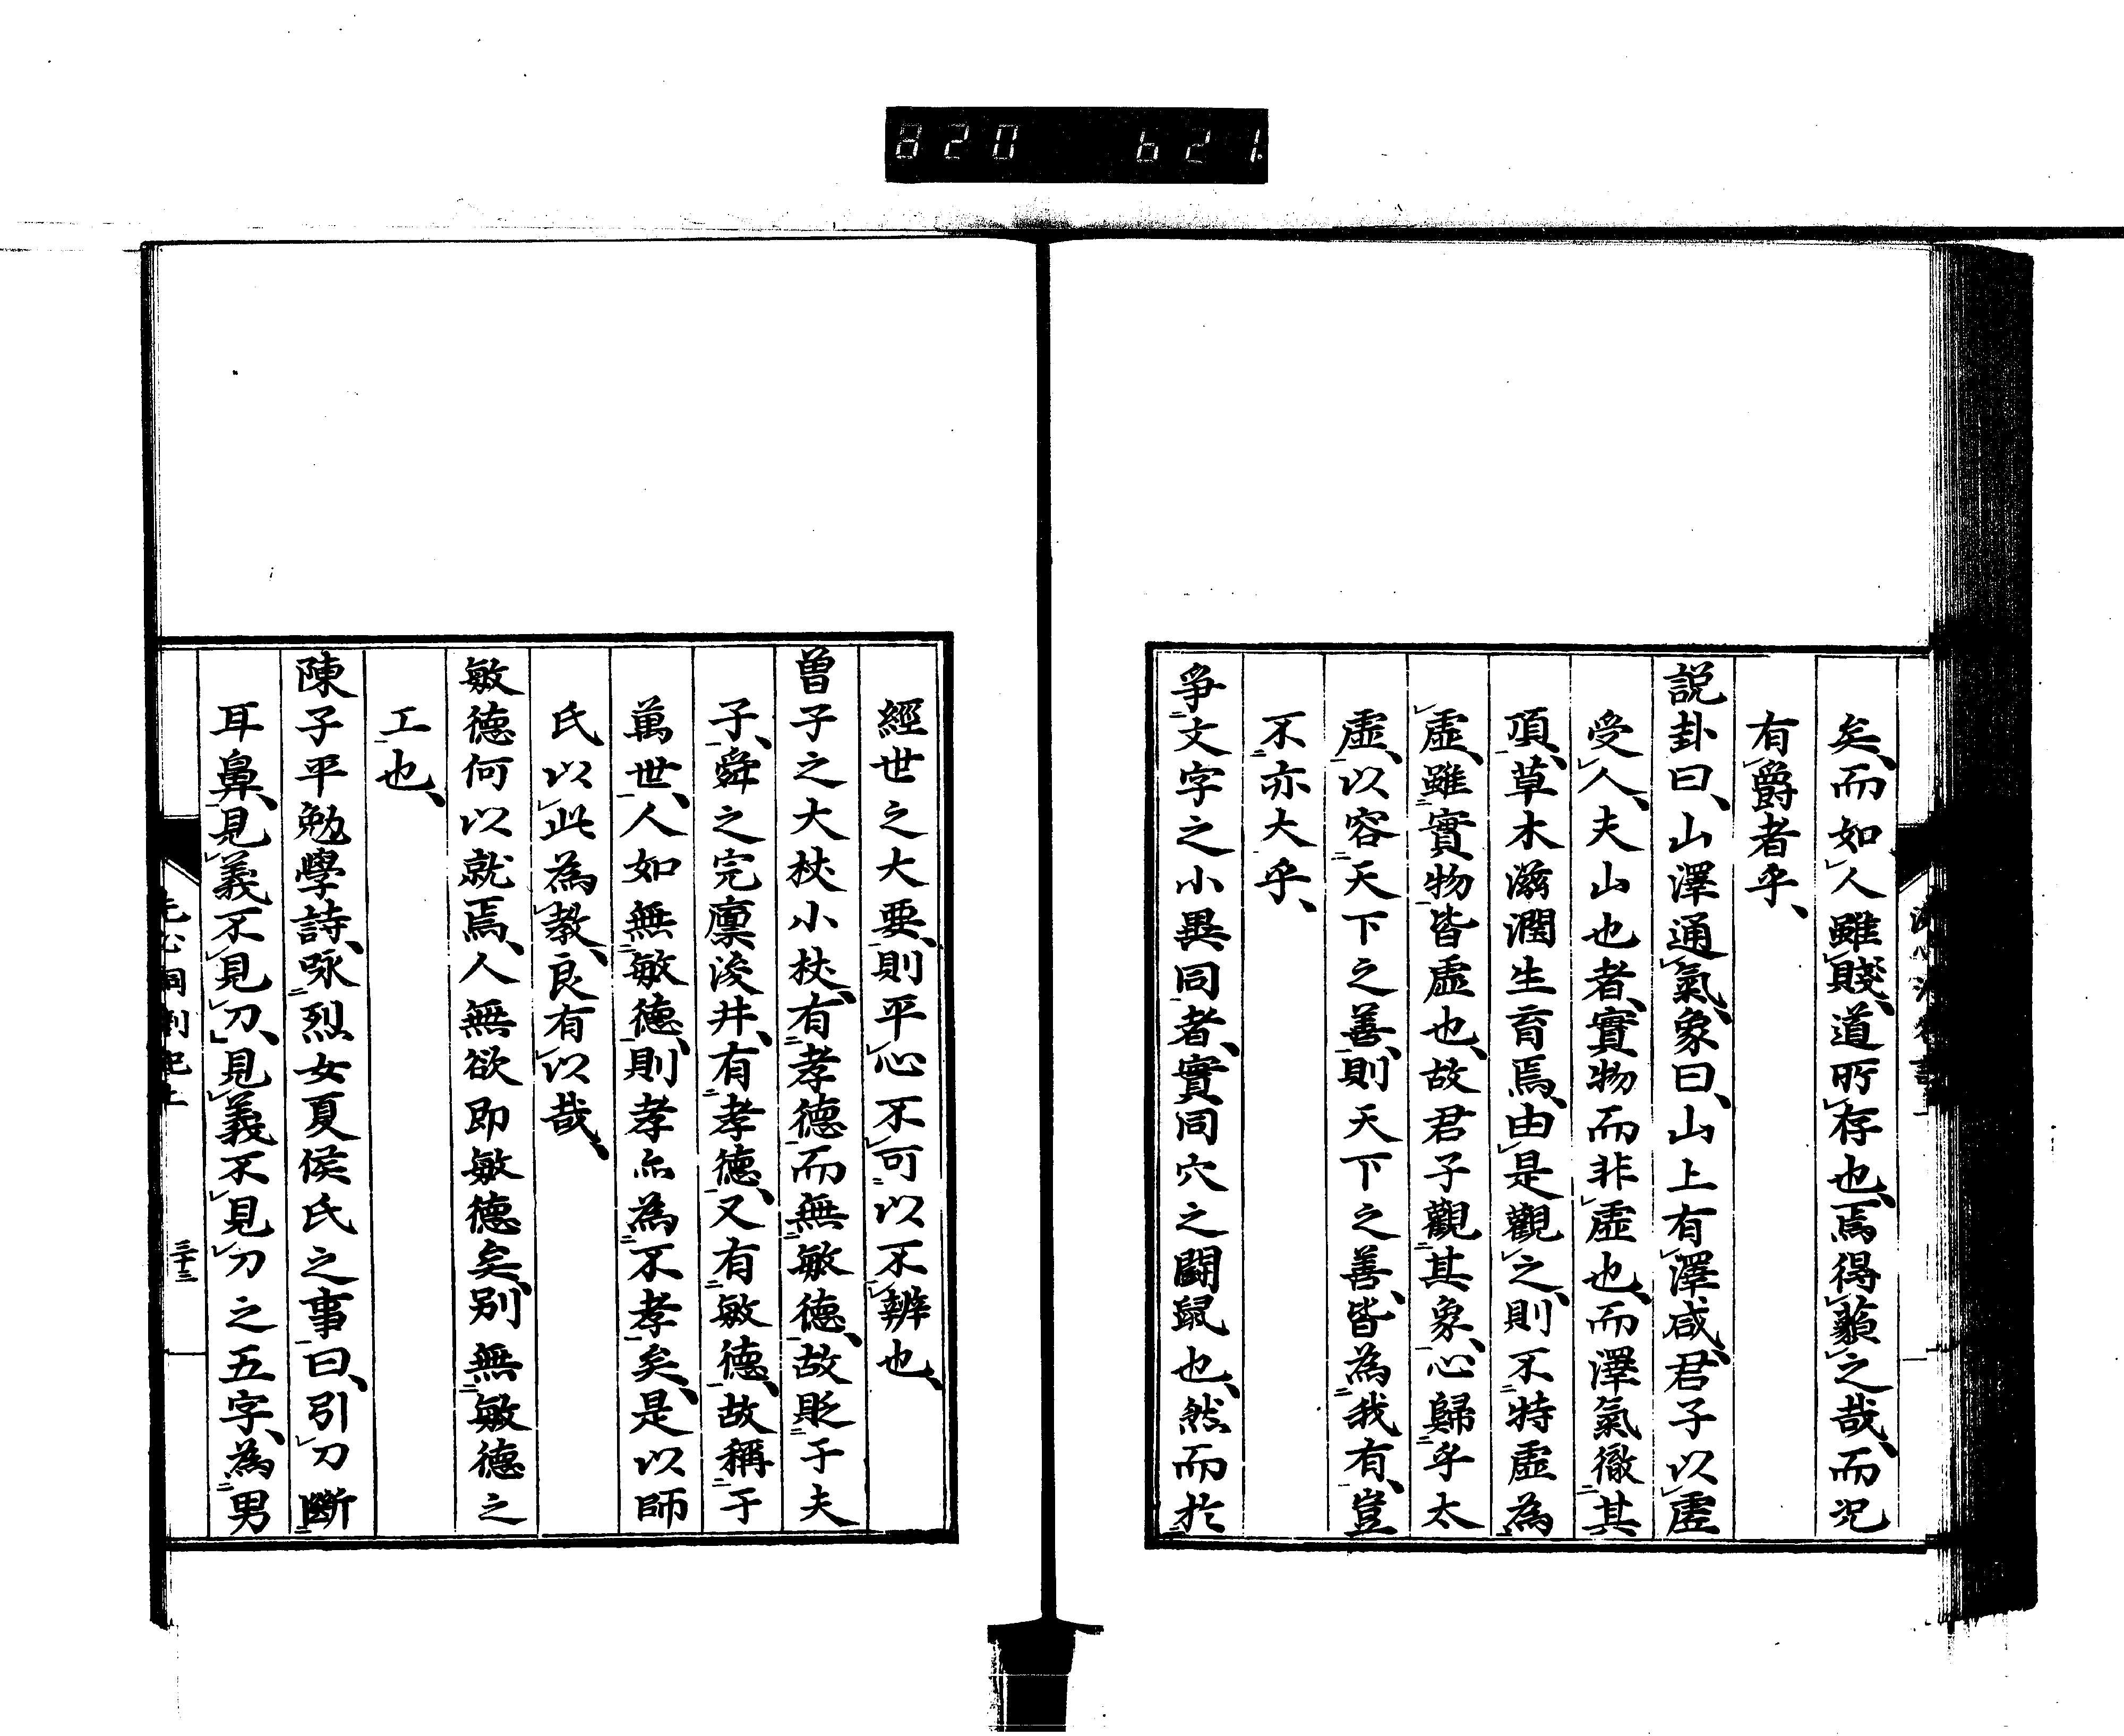 820 621.
矣、而如人雖賤、道所存也、焉得藐之哉、而況
有爵者乎、
説卦曰、山澤通氣、象曰、山上有澤咸、君子以虛
受人、夫山也者、實物而非虛也、而澤氣徹其
頂、草木滋潤生育焉、由是觀之、則不特虛為
虛、雖實物皆虛也、故君子觀其象、心歸乎太
虛、以容天下之善、則天下之善、皆為我有、豈
不亦大乎、
爭文字之小異同者、實同穴之鬪鼠也、然而於
經世之大要、則平心不可以不辨也、
曽子之大杖小杖、有孝德而無敏德、故貶于夫
子、舜之完廩浚井、有孝德、又有敏德、故稱于
萬世、人如無敏德、則孝亦為不孝矣、是以師
氏以此為教、良有以哉、
敏德何以就焉、人無欲即敏德矣、別無敏德之
工也、
陳子平勉學詩、咏烈女夏侯氏之事曰、引刀斷
耳鼻、見義不見刀、見義不見刀之五字、為男
洞劄記上
三十三